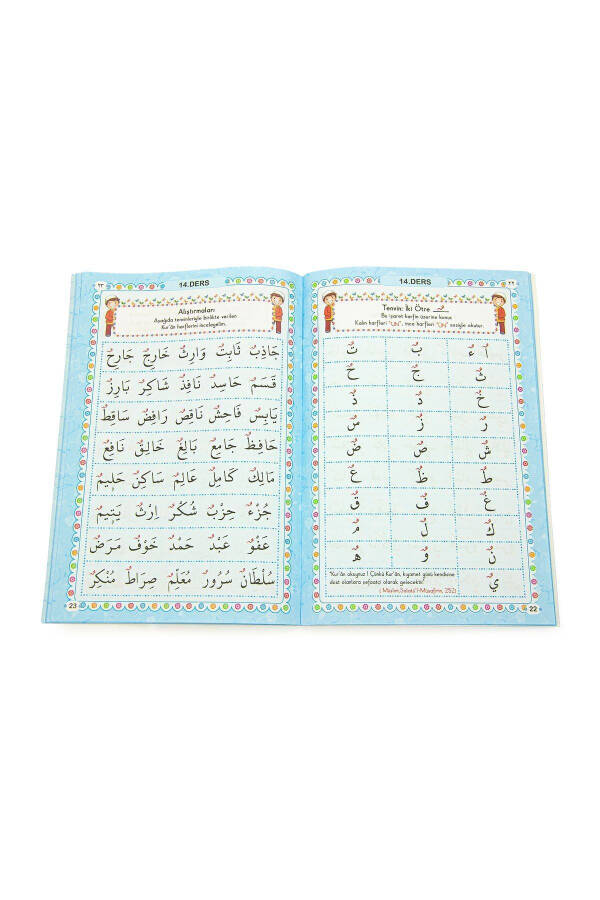 ٢٢
14.DERS
Tenvin: İki Ötre ـٌ
Bu işaret harfin üzerine konur.
Kalın harfleri "UN", ince harfleri "ÜN" sesiyle okutur.
اٌ ءٌ بٌ تٌ
ثٌ جٌ حٌ
خٌ دٌ ذٌ
رٌ زٌ سٌ
شٌ صٌ ضٌ
طٌ ظٌ عٌ
غٌ فٌ قٌ
كٌ لٌ مٌ
نٌ وٌ هٌ
يٌ
"Kur'ân okuyunuz ! Çünkü Kur'ân, kıyamet günü kendisine
dost olanlara şefaatci olarak gelecektir."
( Müslim, Salatü'l-Müsafirin, 252)
22
٢٣
14.DERS
Alıştırmalar:
Aşağıda tenvinleriyle birlikte verilen
Kur'ân harflerini inceleyelim.
جَاذِبٌ ثَابِتٌ وَارِثٌ خَارِجٌ جَارِحٌ
قَسَمٌ حَاسِدٌ نَافِذٌ شَاكِرٌ بَارِزٌ
يَابِسٌ فَاحِشٌ نَاقِصٌ رَافِضٌ سَاقِطٌ
حَافِظٌ جَامِعٌ بَالِغٌ خَالِقٌ نَافِعٌ
مَالِكٌ كَامِلٌ عَالِمٌ سَاكِنٌ حَلِيمٌ
جُزْءٌ حِزْبٌ شُكْرٌ اِرْثٌ يَتِيمٌ
عَفْوٌ عَبْدٌ حَمْدٌ خَوْفٌ مَرَضٌ
سُلْطَانٌ سُرُورٌ مُعَلِّمٌ صِرَاطٌ مُنْكِرٌ
23